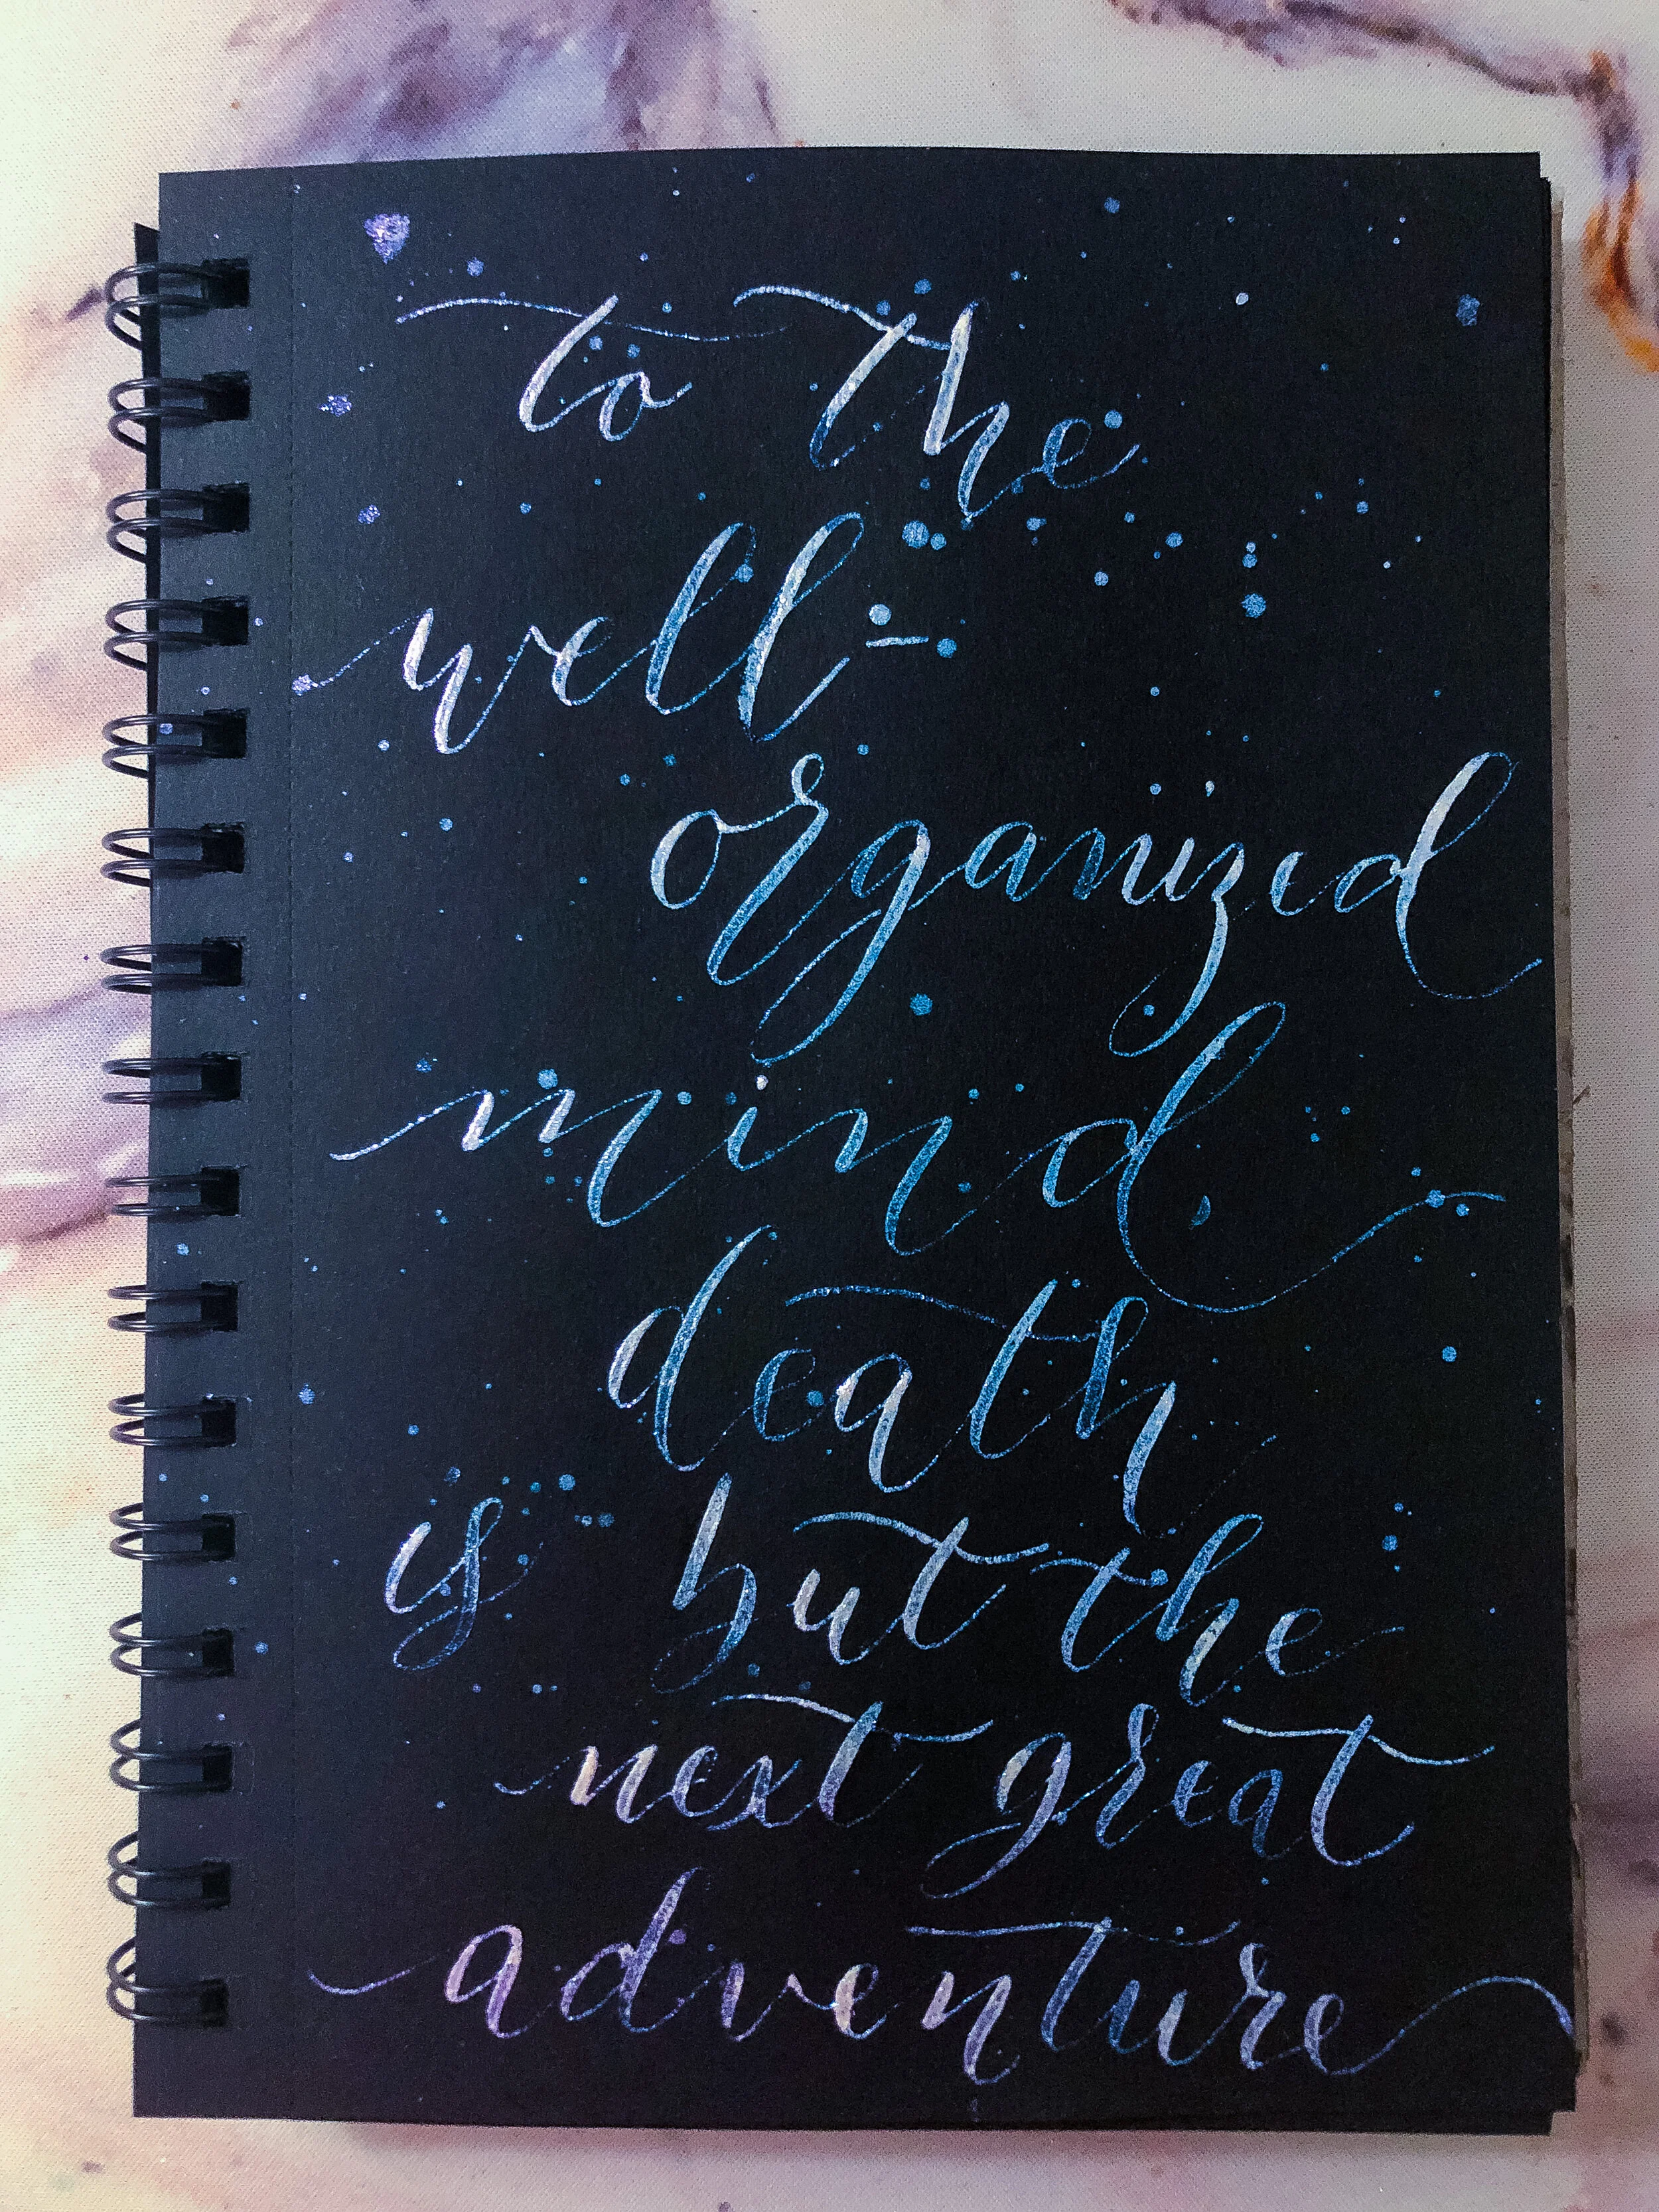 to the
well-
organized
mind,
death
is but the
next great
adventure